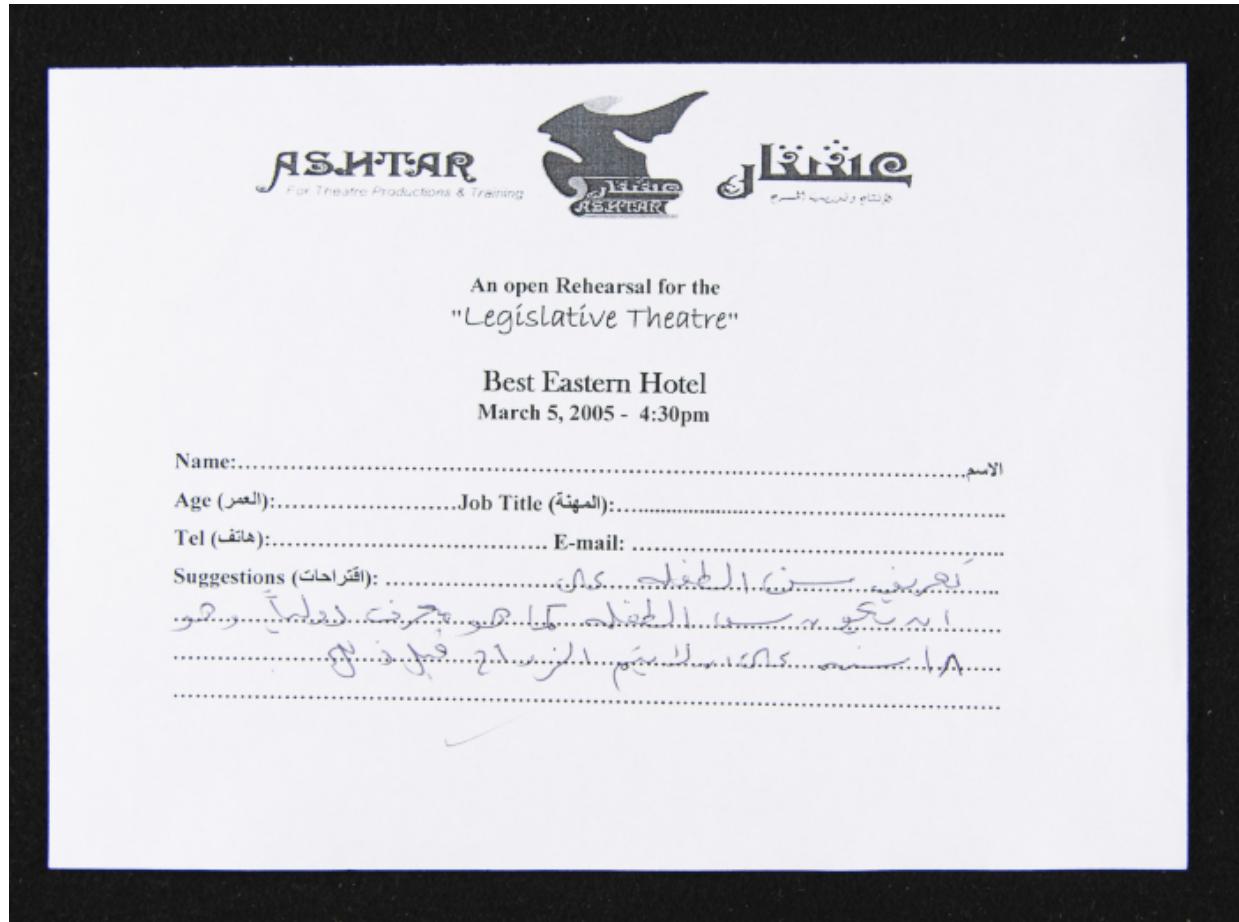 ASHTAR
For Theatre Productions & Training
عشتار
لإنتاج وتدريب المسرح
عشتار
ASHTAR
An open Rehearsal for the
"Legislative Theatre"
Best Eastern Hotel
March 5, 2005 - 4:30pm
Name:..........الاسم
Age (العمر):..........Job Title (المهنة):..........
Tel (هاتف):.......... E-mail: ..........
Suggestions (اقتراحات): تعريف سن الطفله على
ان يكون سن الطفله كما هو معرف دولياً وهو
١٨ سنه على ان لا يتم الزواج قبل ذلك